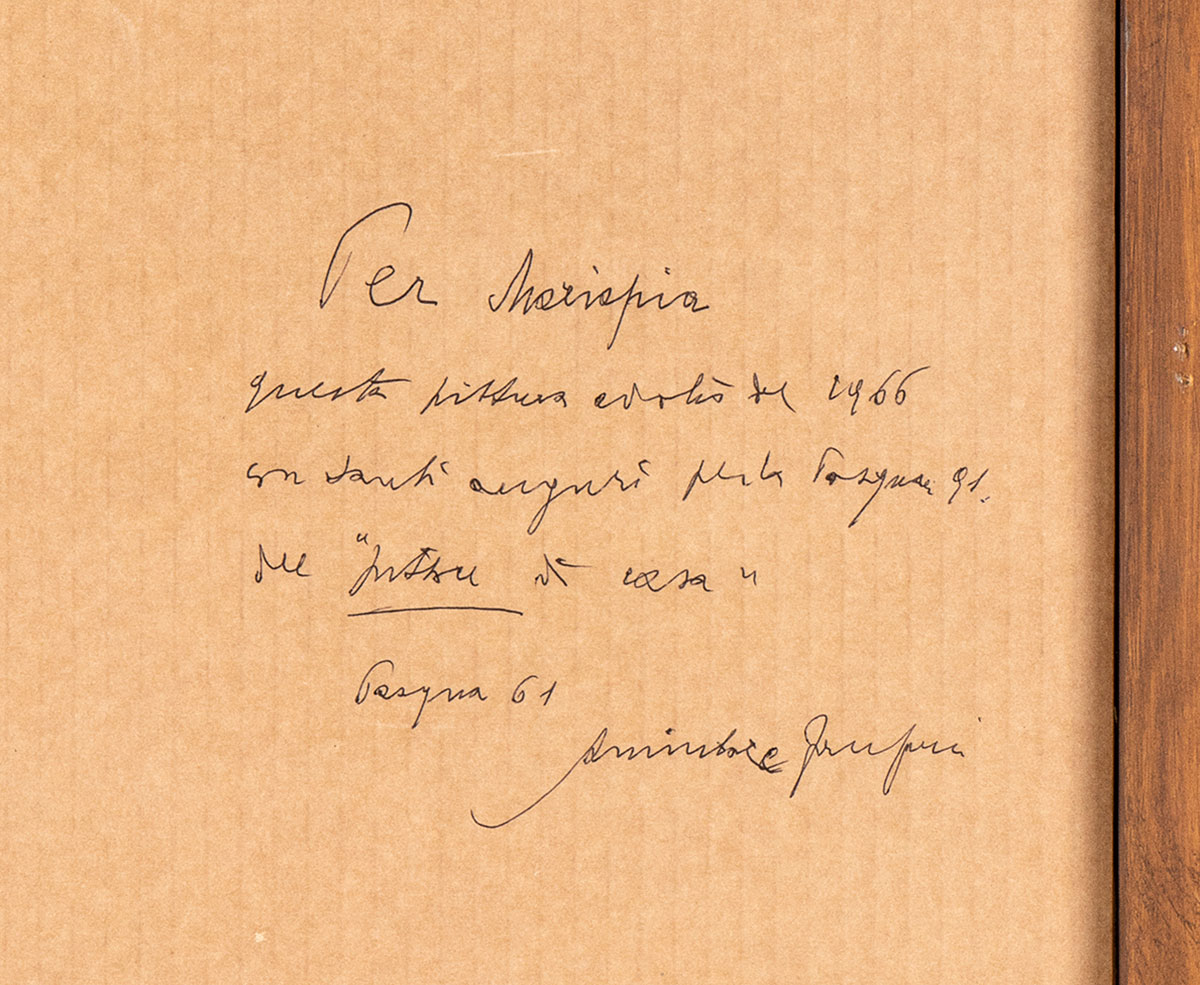 Per Mariapia
questa pittura ad olio del 1966
con tanti auguri per la Pasqua 91.
del "pittore di casa"
Pasqua 61